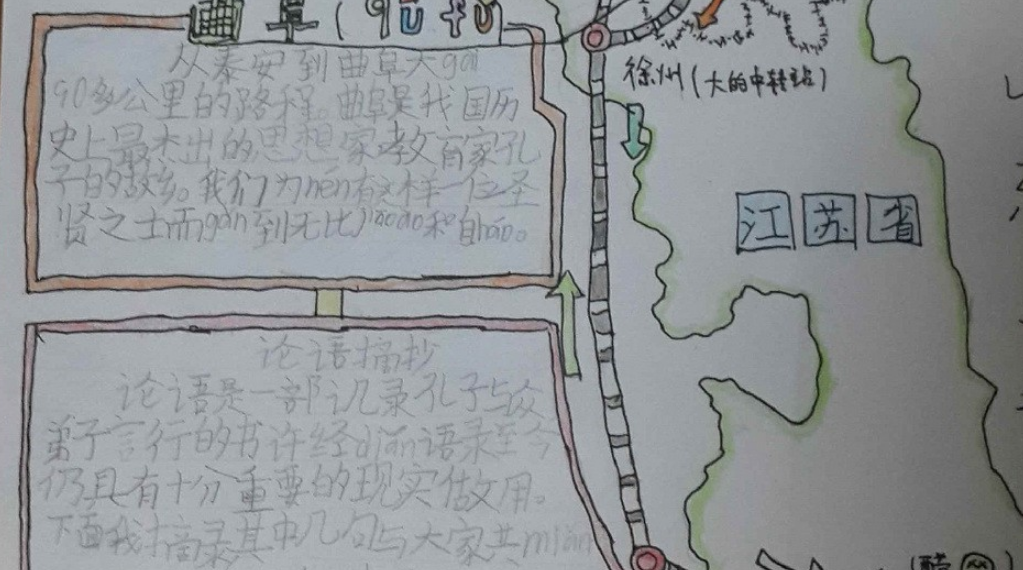 曲阜(qū fù
从泰安到曲阜大gài
90多公里的路程。曲阜是我国历
史上最杰出的思想家教育家孔
子的故乡。我们为nén有这样一位圣
贤之士而gǎn到无比jiāoào和自háo。
论语摘抄
论语是一部记录孔子与众
弟子言行的书许经diǎn语录至今
仍具有十分重要的现实做用。
下面我摘录其中几句与大家共miǎn
徐州(大的中转站)
江苏省